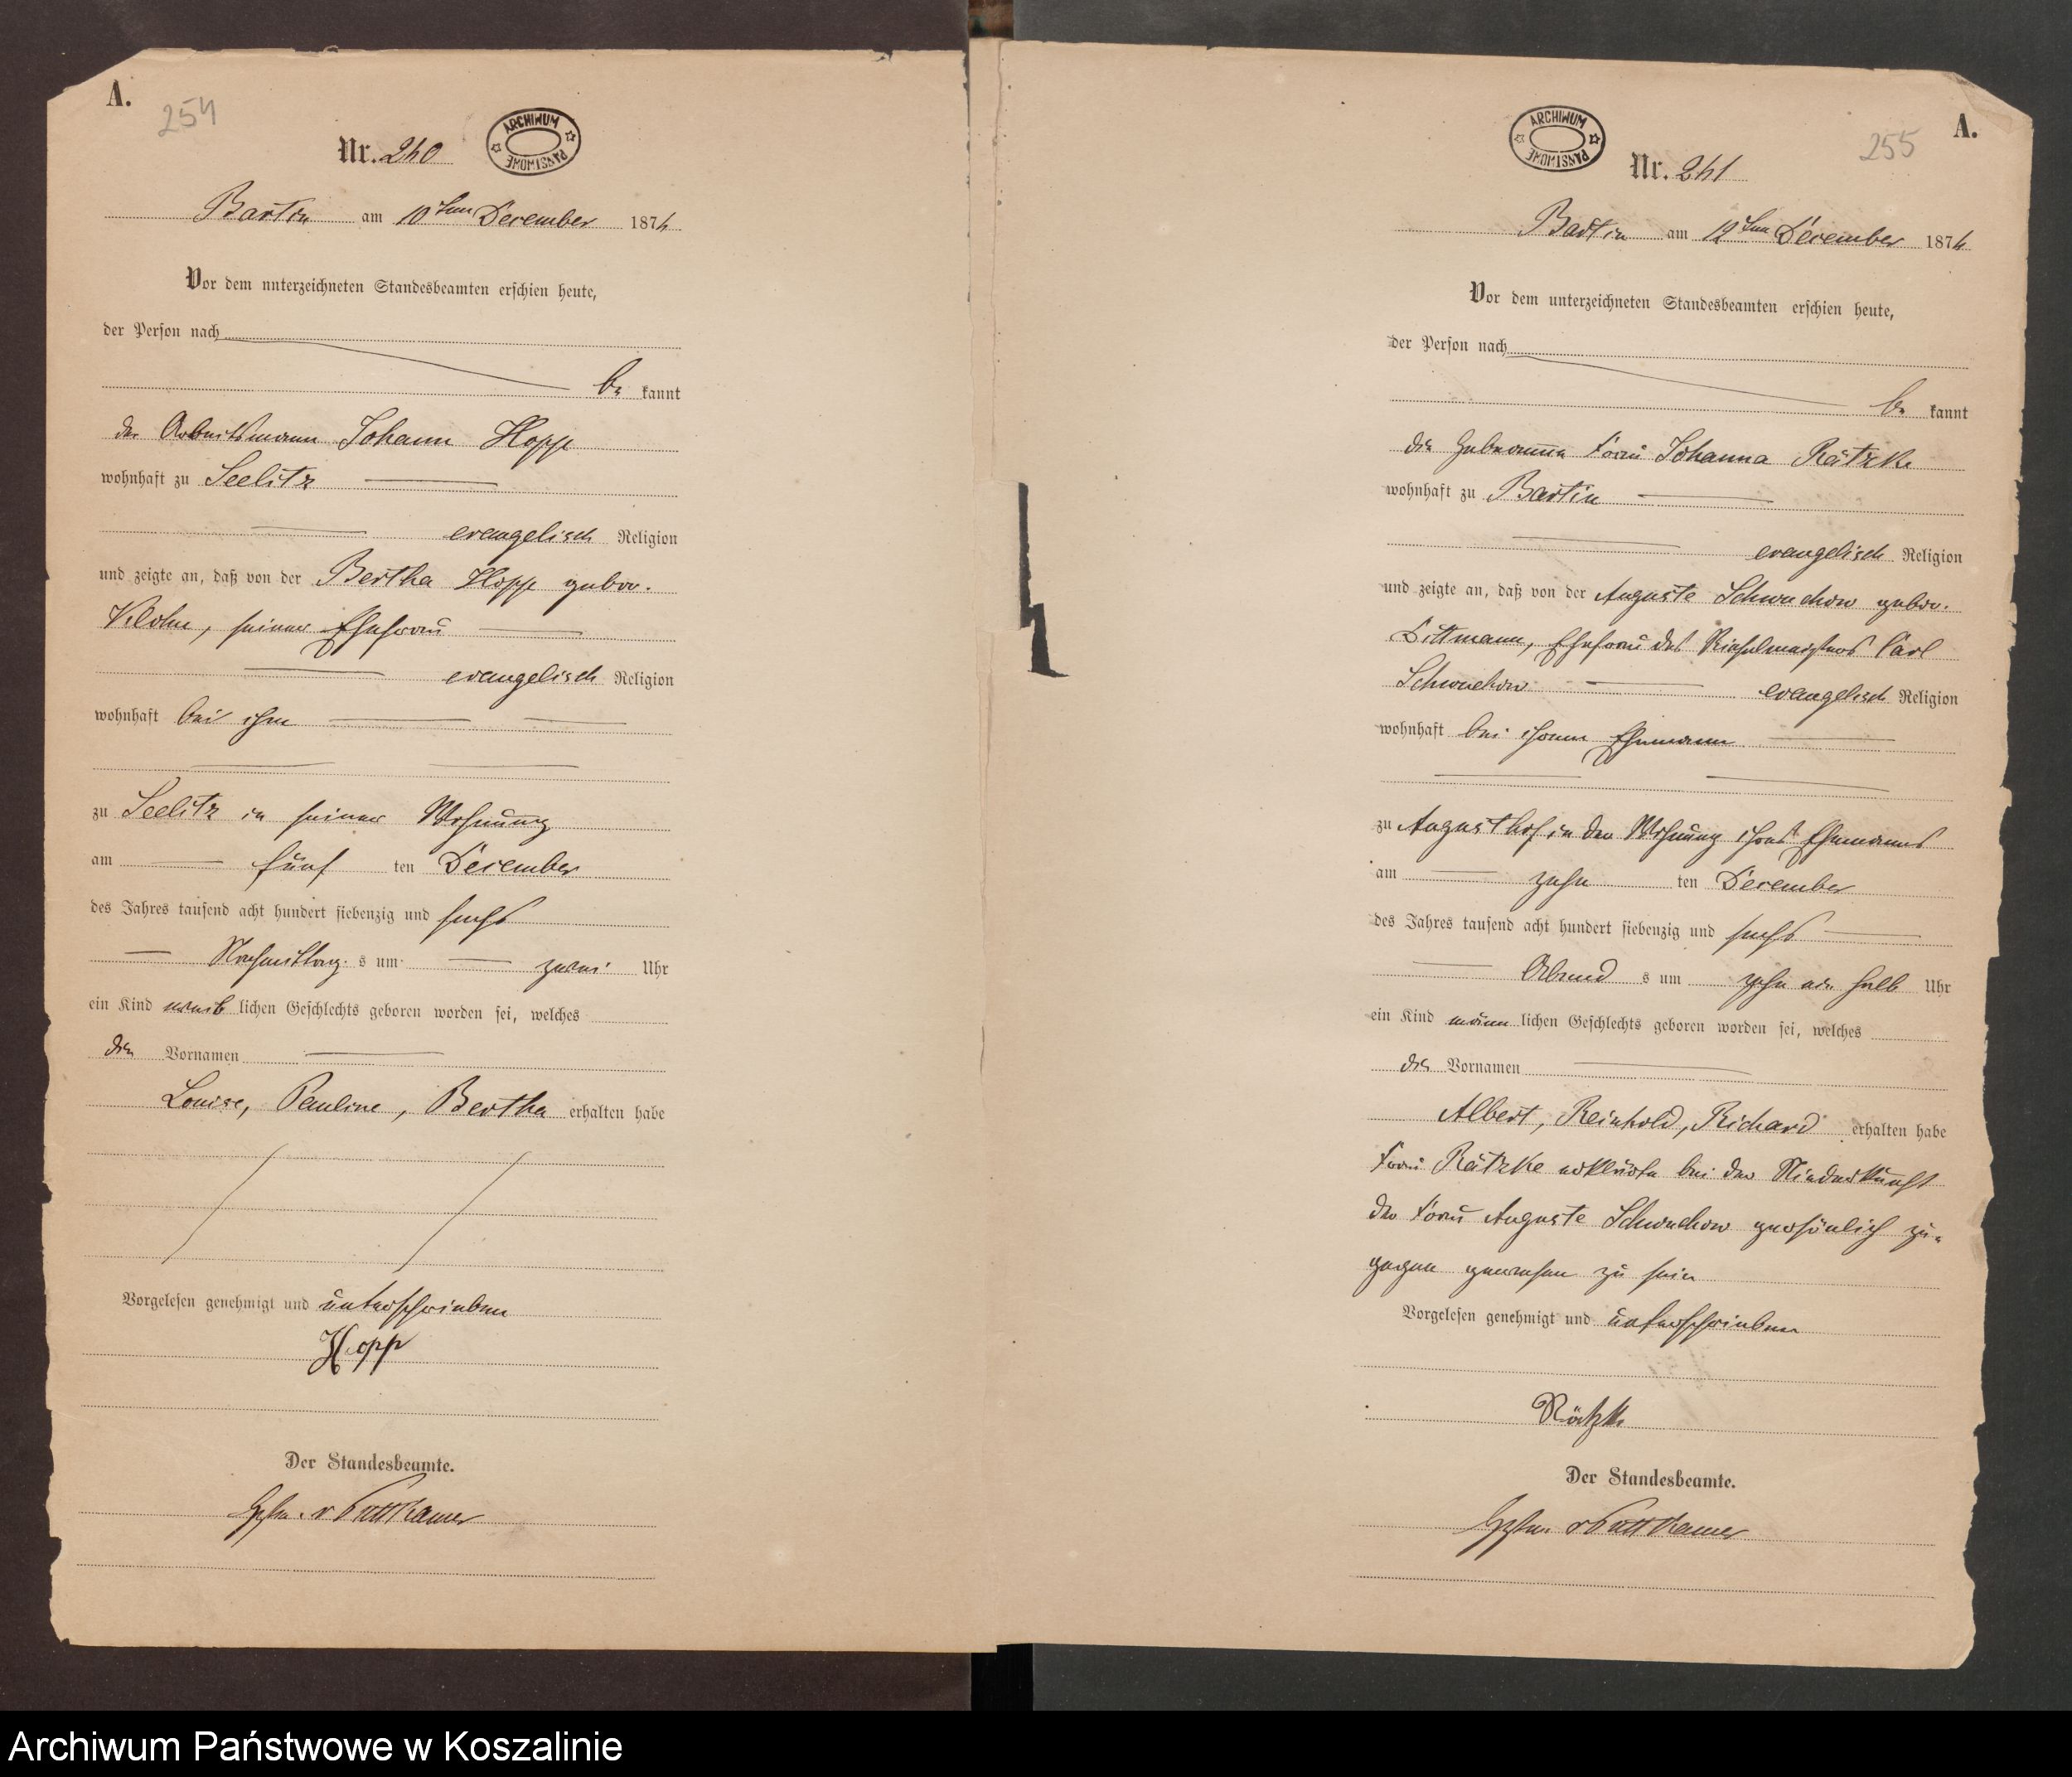 A.
254
Nr. 240
ARCHIWUM PAŃSTWOWE
Bartin am 10ten December 1876
Vor dem unterzeichneten Standesbeamten erschien heute,
der Person nach
be kannt
der Arbeitsmann Johann Hopp
wohnhaft zu Seelitz
evangelisch Religion
und zeigte an, daß von der Bertha Hopp gebor.
Klohn, seiner Ehefrau
evangelisch Religion
wohnhaft bei ihm
zu Seelitz in seiner Wohnung
am fünf ten December
des Jahres tausend acht hundert siebenzig und sechs
Nachmittag s um zwei Uhr
ein Kind weib lichen Geschlechts geboren worden sei, welches
die Vornamen
Louise, Pauline, Bertha erhalten habe
Vorgelesen genehmigt und unterschrieben
Hopp
Der Standesbeamte.
v Puttkamer
A.
255
ARCHIWUM PAŃSTWOWE
Nr. 241
Bartin am 12ten December 1876
Vor dem unterzeichneten Standesbeamten erschien heute,
der Person nach
be kannt
die Hebamme Frau Johanna Rätzke
wohnhaft zu Bartin
evangelisch Religion
und zeigte an, daß von der Auguste Schwuchow gebor.
Dittmann, Ehefrau des Rieselmeisters Carl
Schwuchow evangelisch Religion
wohnhaft bei ihrem Ehemann
zu Augusthof in der Wohnung ihres Ehemanns
am zehn ten December
des Jahres tausend acht hundert siebenzig und sechs
Abend s um zehn ein halb Uhr
ein Kind männ lichen Geschlechts geboren worden sei, welches
die Vornamen
Albert, Reinhold, Richard erhalten habe
Frau Rätzke erklärte bei der Niederkunft
der Frau Auguste Schwuchow persönlich zu-
gegen gewesen zu sein
Vorgelesen genehmigt und unterschrieben
Rätzke
Der Standesbeamte.
v Puttkamer
Archiwum Państwowe w Koszalinie